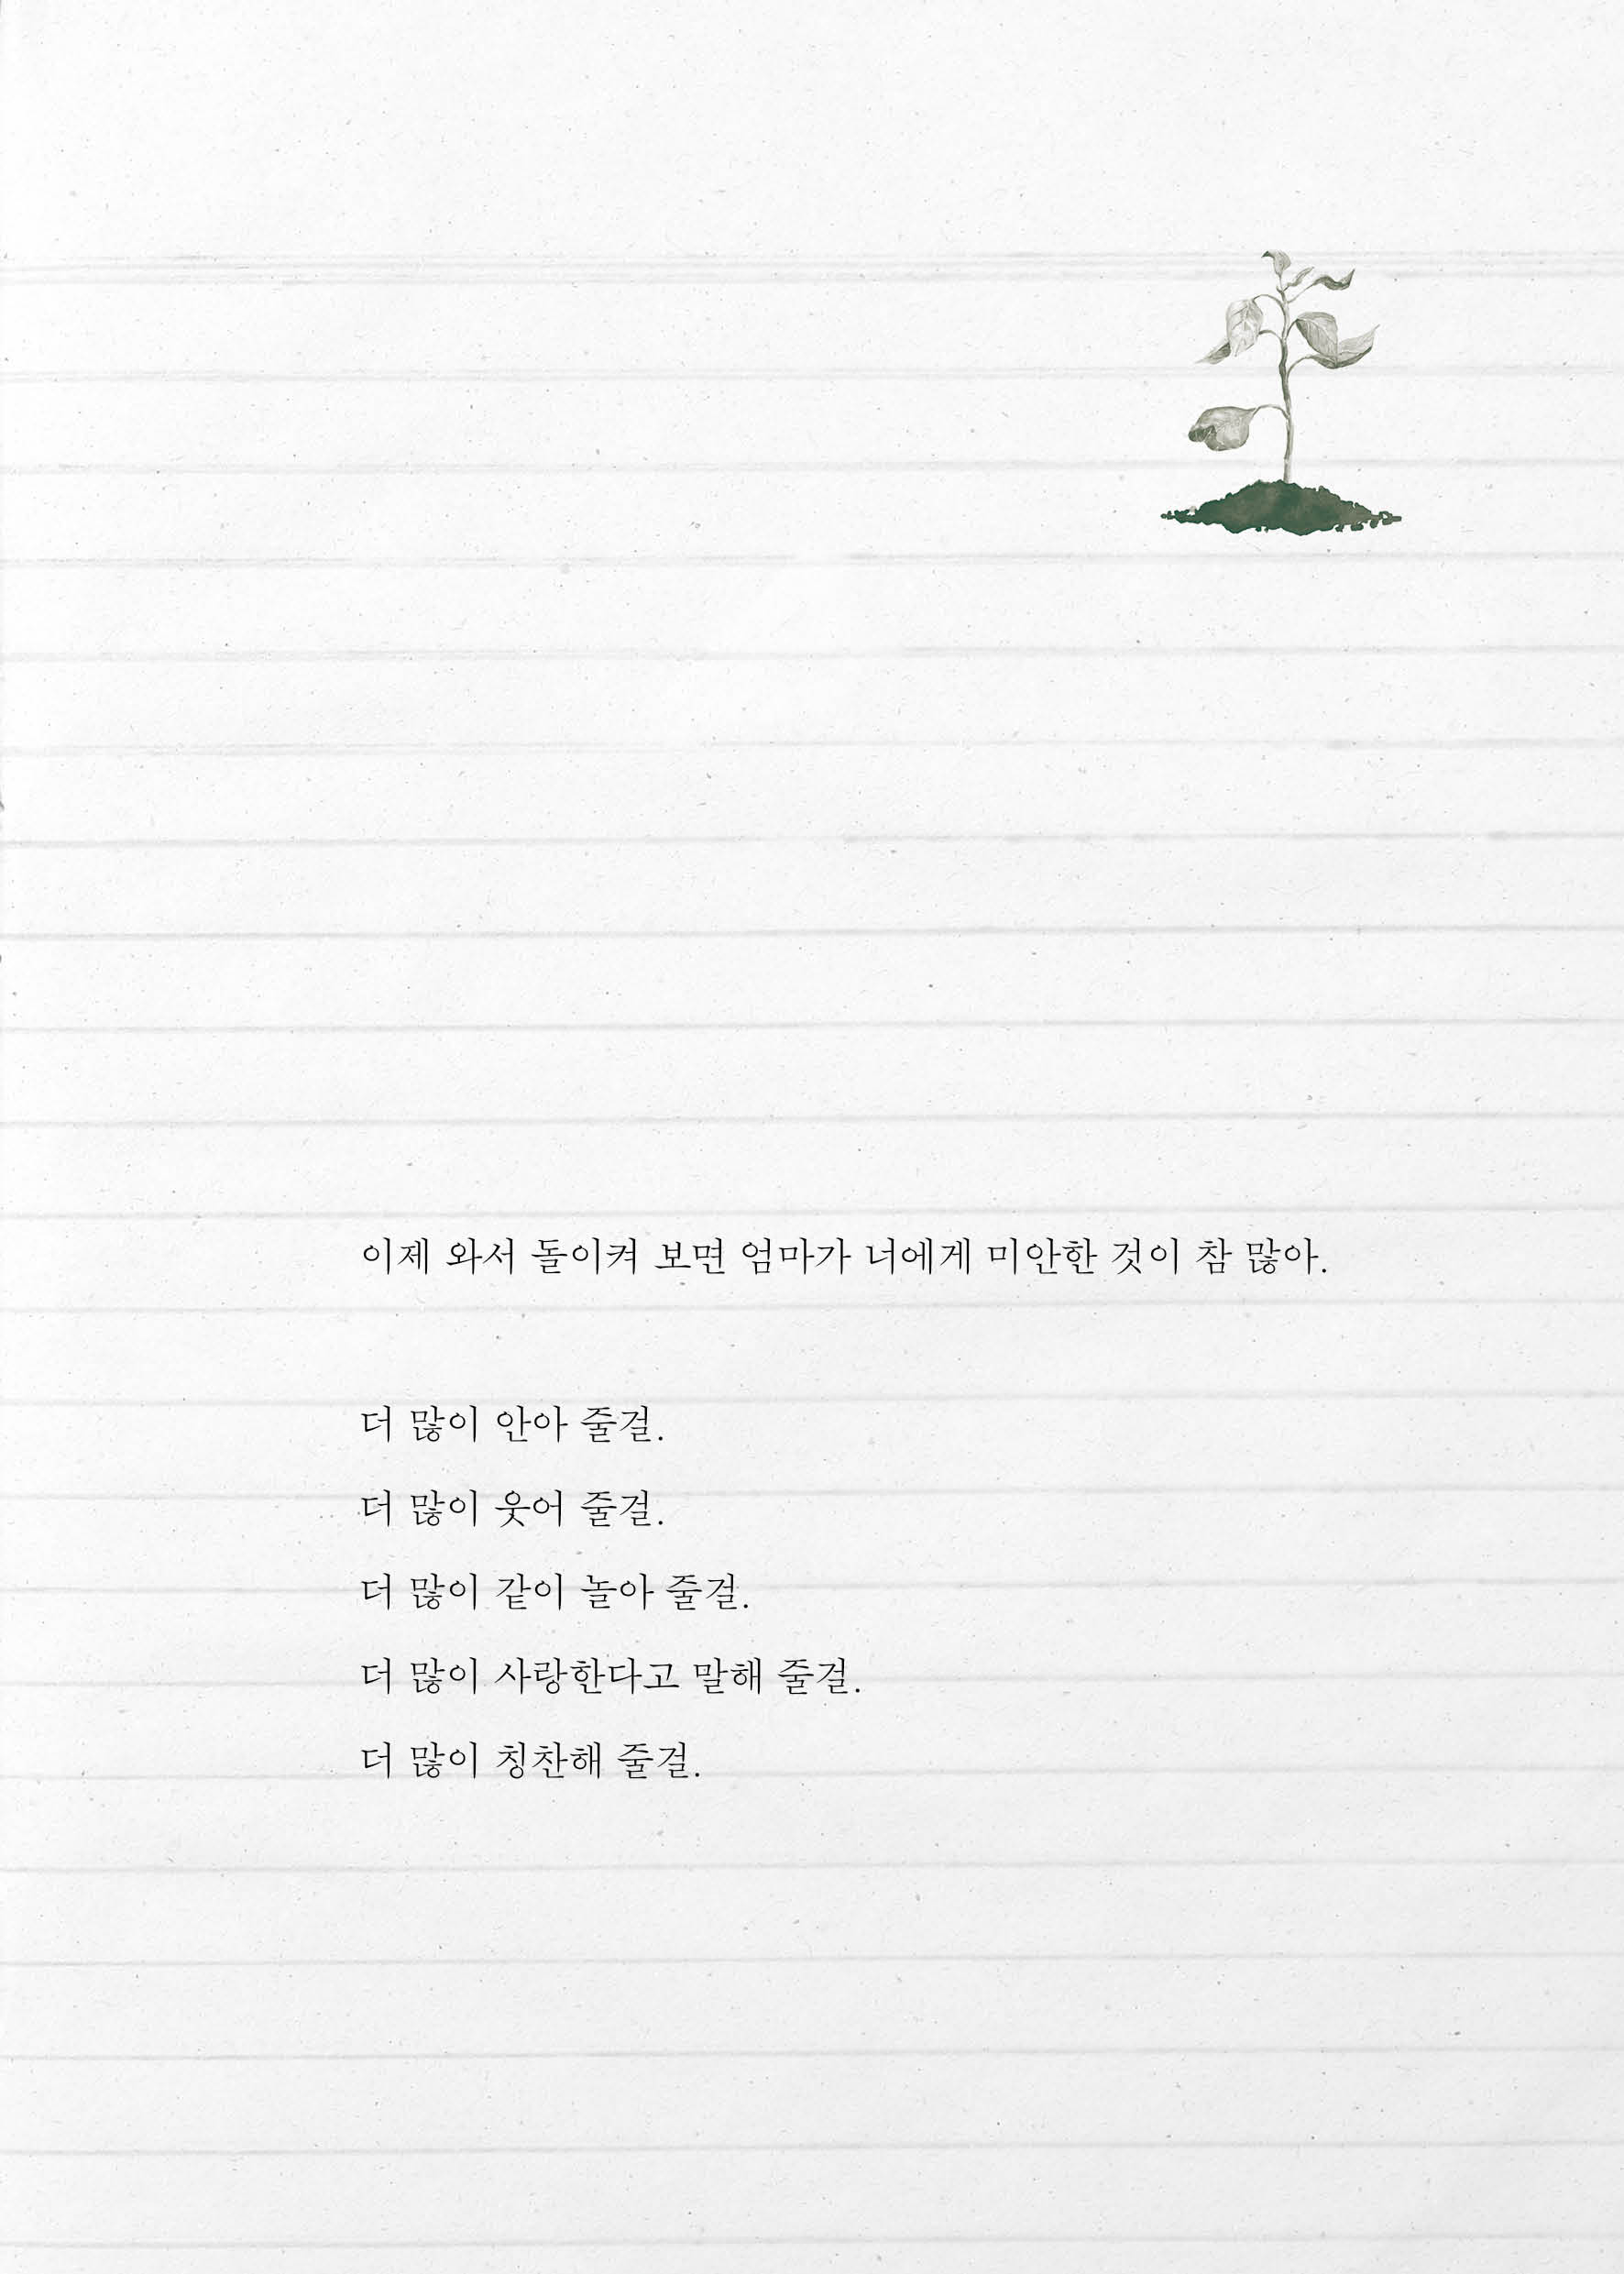 이제 와서 돌이켜 보면 엄마가 너에게 미안한 것이 참 많아.
더 많이 안아 줄걸.
더 많이 웃어 줄걸.
더 많이 같이 놀아 줄걸.
더 많이 사랑한다고 말해 줄걸.
더 많이 칭찬해 줄걸.